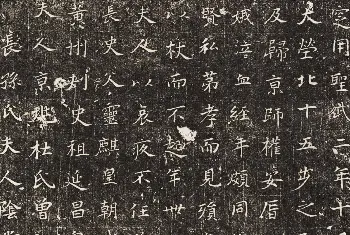 用聖武二年十
大塋北十五步之
及歸京師權安厝
娥泣血經年頗同
賢私第孝而見殞
以杖而不起年卅
夫人以哀疚不任
長史父靈麒皇朝
黃州刺史祖延昌
夫人京兆杜氏曾
長孫氏夫人陰堂